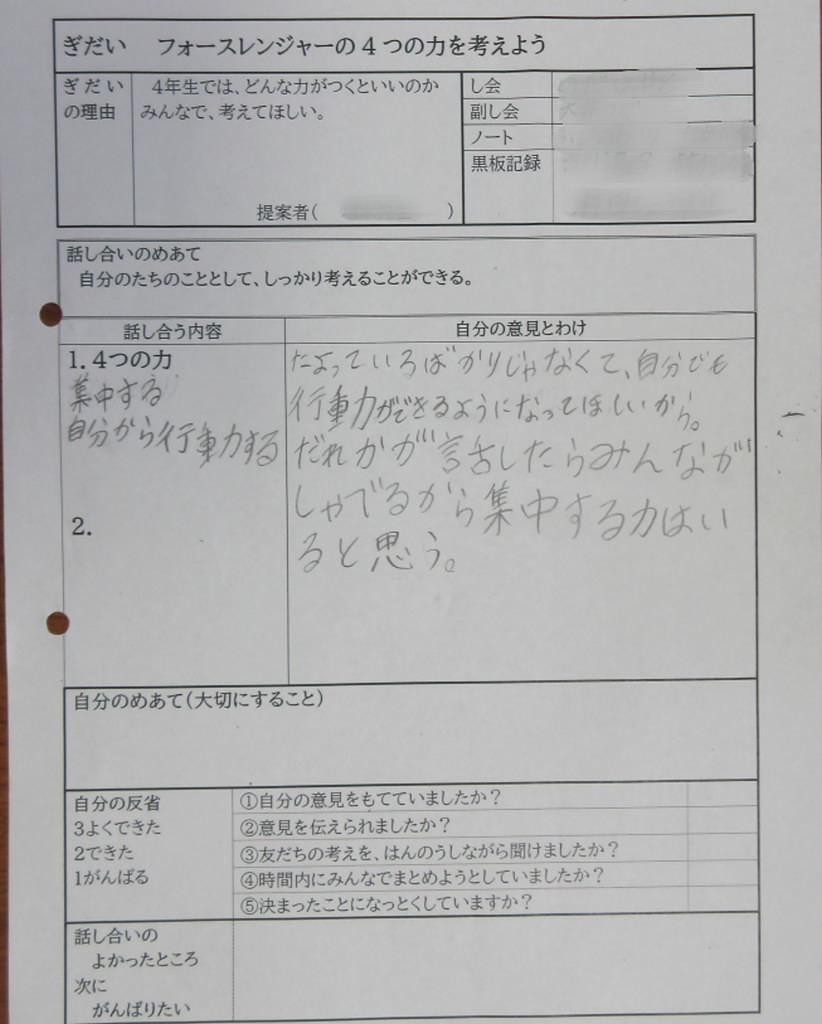 ぎだい　フォースレンジャーの4つの力を考えよう
ぎだい
の理由
4年生では、どんな力がつくといいのか
みんなで、考えてほしい。
提案者(　　　)
し会
副し会
ノート
黒板記録
話し合いのめあて
自分のたちのこととして、しっかり考えることができる。
話し合う内容
自分の意見とわけ
1. 4つの力
集中する
自分から行動力する
2.
たよっているばかりじゃなくて、自分でも
行動力ができるようになってほしいから。
だれかが話したらみんなが
しゃべるから集中する力はい
ると思う。
自分のめあて(大切にすること)
自分の反省
3よくできた
2できた
1がんばる
①自分の意見をもてていましたか？
②意見を伝えられましたか？
③友だちの考えを、はんのうしながら聞けましたか？
④時間内にみんなでまとめようとしていましたか？
⑤決まったことになっとくしていますか？
話し合いの
よかったところ
次に
がんばりたい